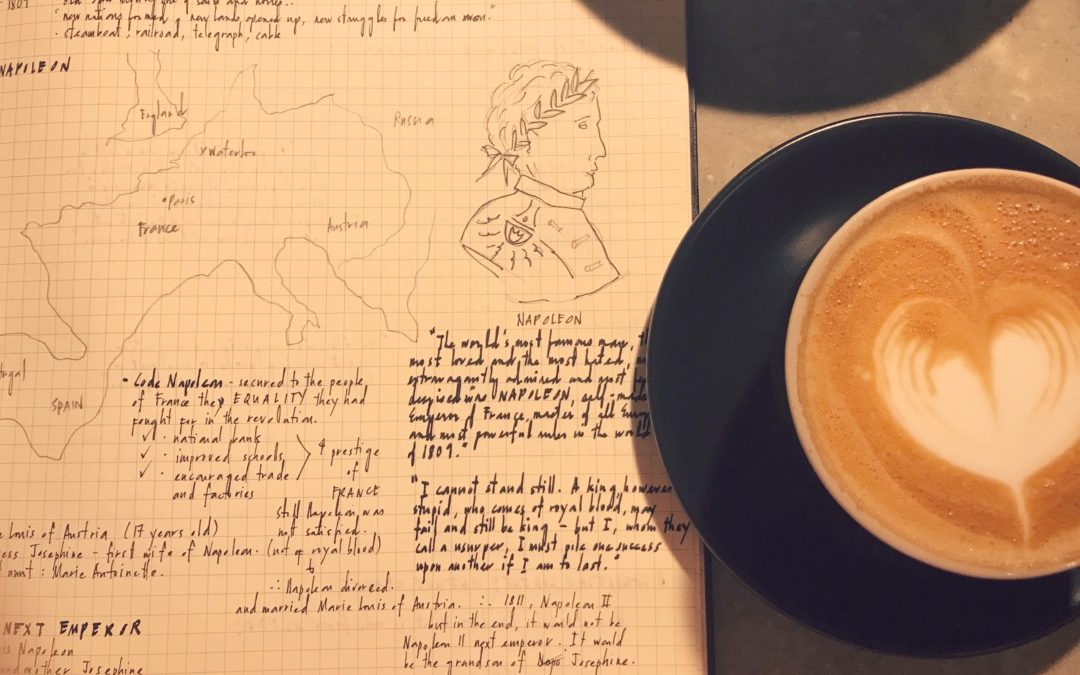 1809
"new nations formed, new lands opened up, new struggles for freedom won."
· steamboat, railroad, telegraph, cable
NAPOLEON
England
Russia
x Waterloo
• Paris
France
Austria
SPAIN
NAPOLEON
"The world's most famous man, 
most loved and the most hated,
extravagantly admired and most
despised was NAPOLEON, self-made
Emperor of France, master of all Europe
and most powerful ruler in the world
of 1809."
• Code Napoleon - secured to the people
of France the EQUALITY they had
fought for in the revolution.
✓ · national bank
✓ · improved schools
✓ · encouraged trade
and factories
prestige
of
FRANCE
still Napoleon was
not satisfied.
"I cannot stand still. A king, however
stupid, who comes of royal blood, may
fail and still be king - but I, whom they
call a usurper, I must pile one success
upon another if I am to last."
Louis of Austria (17 years old)
Josephine - first wife of Napoleon. (not of royal blood)
aunt : Marie Antoinette.
∴ Napoleon divorced
and married Marie Louis of Austria. ∴ 1811, Napoleon II
but in the end, it would not be
Napoleon II next emperor. It would
be the grandson of Josephine.
NEXT EMPEROR
Napoleon
mother Josephine